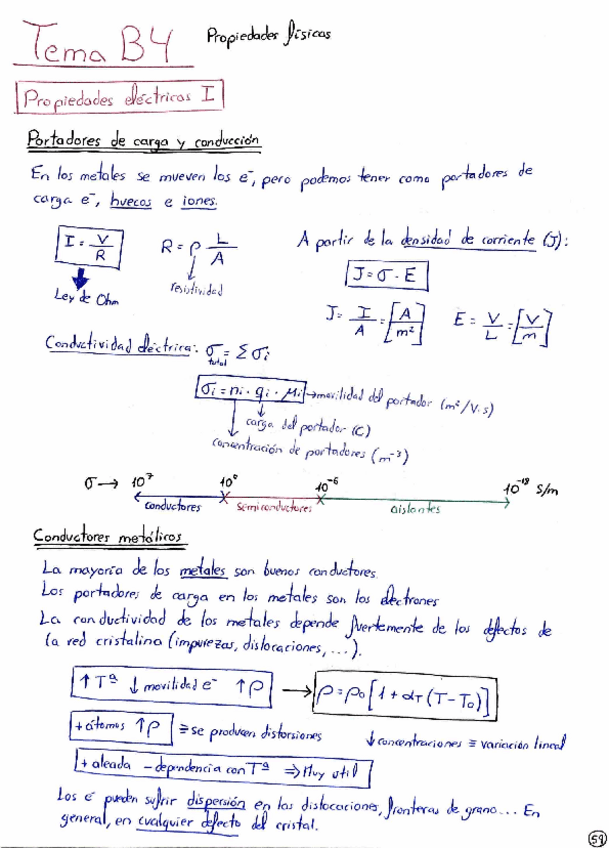 Tema B4 Propiedades físicas
Propiedades eléctricas I
Portadores de carga y conducción
En los metales se mueven los e⁻, pero podemos tener como portadores de
carga e⁻, huecos e iones.
I = V/R R = ρ L/A A partir de la densidad de corriente (J):
Ley de Ohm resistividad J = σ · E
J = I/A = [A/m²] E = V/L = [V/m]
Conductividad eléctrica: σtotal = Σ σi
σi = ni · qi · μi → movilidad del portador (m²/V·s)
carga del portador (C)
concentración de portadores (m⁻³)
σ → 10⁷ 10⁰ 10⁻⁶ 10⁻¹⁸ S/m
conductores semiconductores aislantes
Conductores metálicos
La mayoría de los metales son buenos conductores.
Los portadores de carga en los metales son los electrones
La conductividad de los metales depende fuertemente de los defectos de
la red cristalina (impurezas, dislocaciones, ...).
↑Tª ↓ movilidad e⁻ ↑ρ → ρ = ρ0 [1 + αT (T - T0)]
+ átomos ↑ρ ≡ se producen distorsiones ↓ concentraciones ≡ variación lineal
+ aleada - dependencia con Tª ⇒ Muy util
Los e⁻ pueden sufrir dispersión en las dislocaciones, fronteras de grano... En
general, en cualquier defecto del cristal.
59